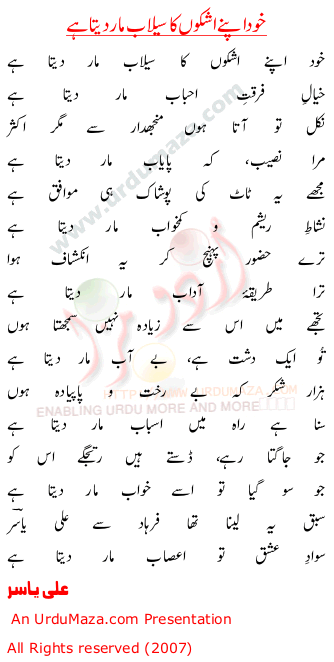 خود اپنے اشکوں کا سیلاب مار دیتا ہے
خود اپنے اشکوں کا سیلاب مار دیتا ہے
خیالِ فرقتِ احباب مار دیتا ہے
نکل تو آتا ہوں منجھدار سے مگر اکثر
مرا نصیب، کہ پایاب مار دیتا ہے
مجھے یہ ٹاٹ کی پوشاک ہی موافق ہے
نشاطِ ریشم و کمخواب مار دیتا ہے
ترے حضور پہنچ کر یہ انکشاف ہوا
ترا طریقۂ آداب مار دیتا ہے
تجھے میں اس سے زیادہ نہیں سمجھتا ہوں
تُو ایک دشت ہے، بے آب مار دیتا ہے
ہزار شکر کہ بے رخت و پاپیادہ ہوں
سنا ہے راہ میں اسباب مار دیتا ہے
جو جاگتا رہے، ڈستے ہیں رتجگے اس کو
جو سو گیا تو اسے خواب مار دیتا ہے
سبق یہ لینا تھا فرہاد سے علی یاسرؔ
سوادِ عشق تو اعصاب مار دیتا ہے
علی یاسر
An UrduMaza.com Presentation
All Rights reserved (2007)
www.urdumaza.com
اردو مزا
HTTP://WWW.URDUMAZA.COM
ENABLING URDU MORE AND MORE